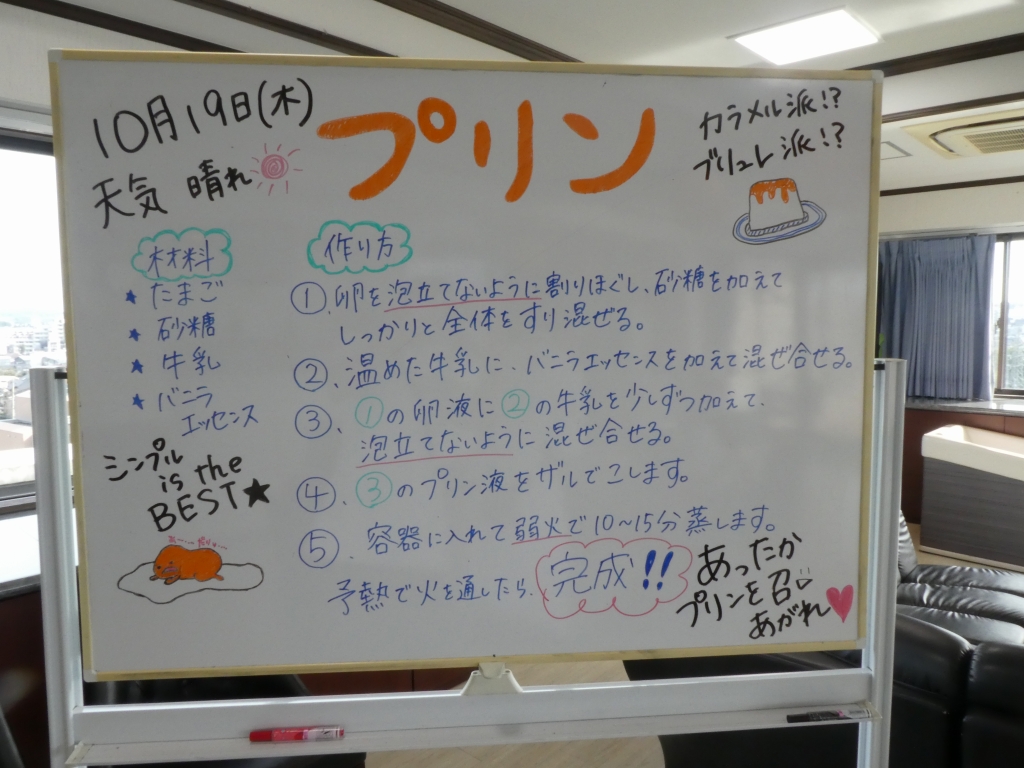 10月19日(木)
天気 晴れ
プリン
カラメル派!?
ブリュレ派!?
材料
★ たまご
★ 砂糖
★ 牛乳
★ バニラ
エッセンス
シンプル
is the
BEST★
作り方
①.卵を泡立てないように割りほぐし、砂糖を加えて
しっかりと全体をすり混ぜる。
②.温めた牛乳に、バニラエッセンスを加えて混ぜ合せる。
③.①の卵液に②の牛乳を少しずつ加えて、
泡立てないように混ぜ合せる。
④.③のプリン液をザルでこします。
⑤.容器に入れて弱火で10〜15分蒸します。
予熱で火を通したら、完成!!
あったか
プリンを召し
あがれ♥